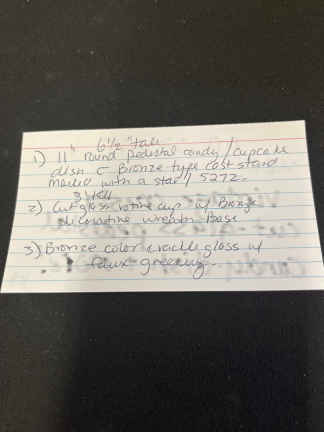 6 1/2" tall
1) 11" round pedestal candy / cupcake
dish c Bronze type cast stand
marked with a star // 5272.
3" tall
2) Cut glass votive cup w/ Bronze
decorative wreath Base
3) Bronze color crackle glass w/
faux greenery.